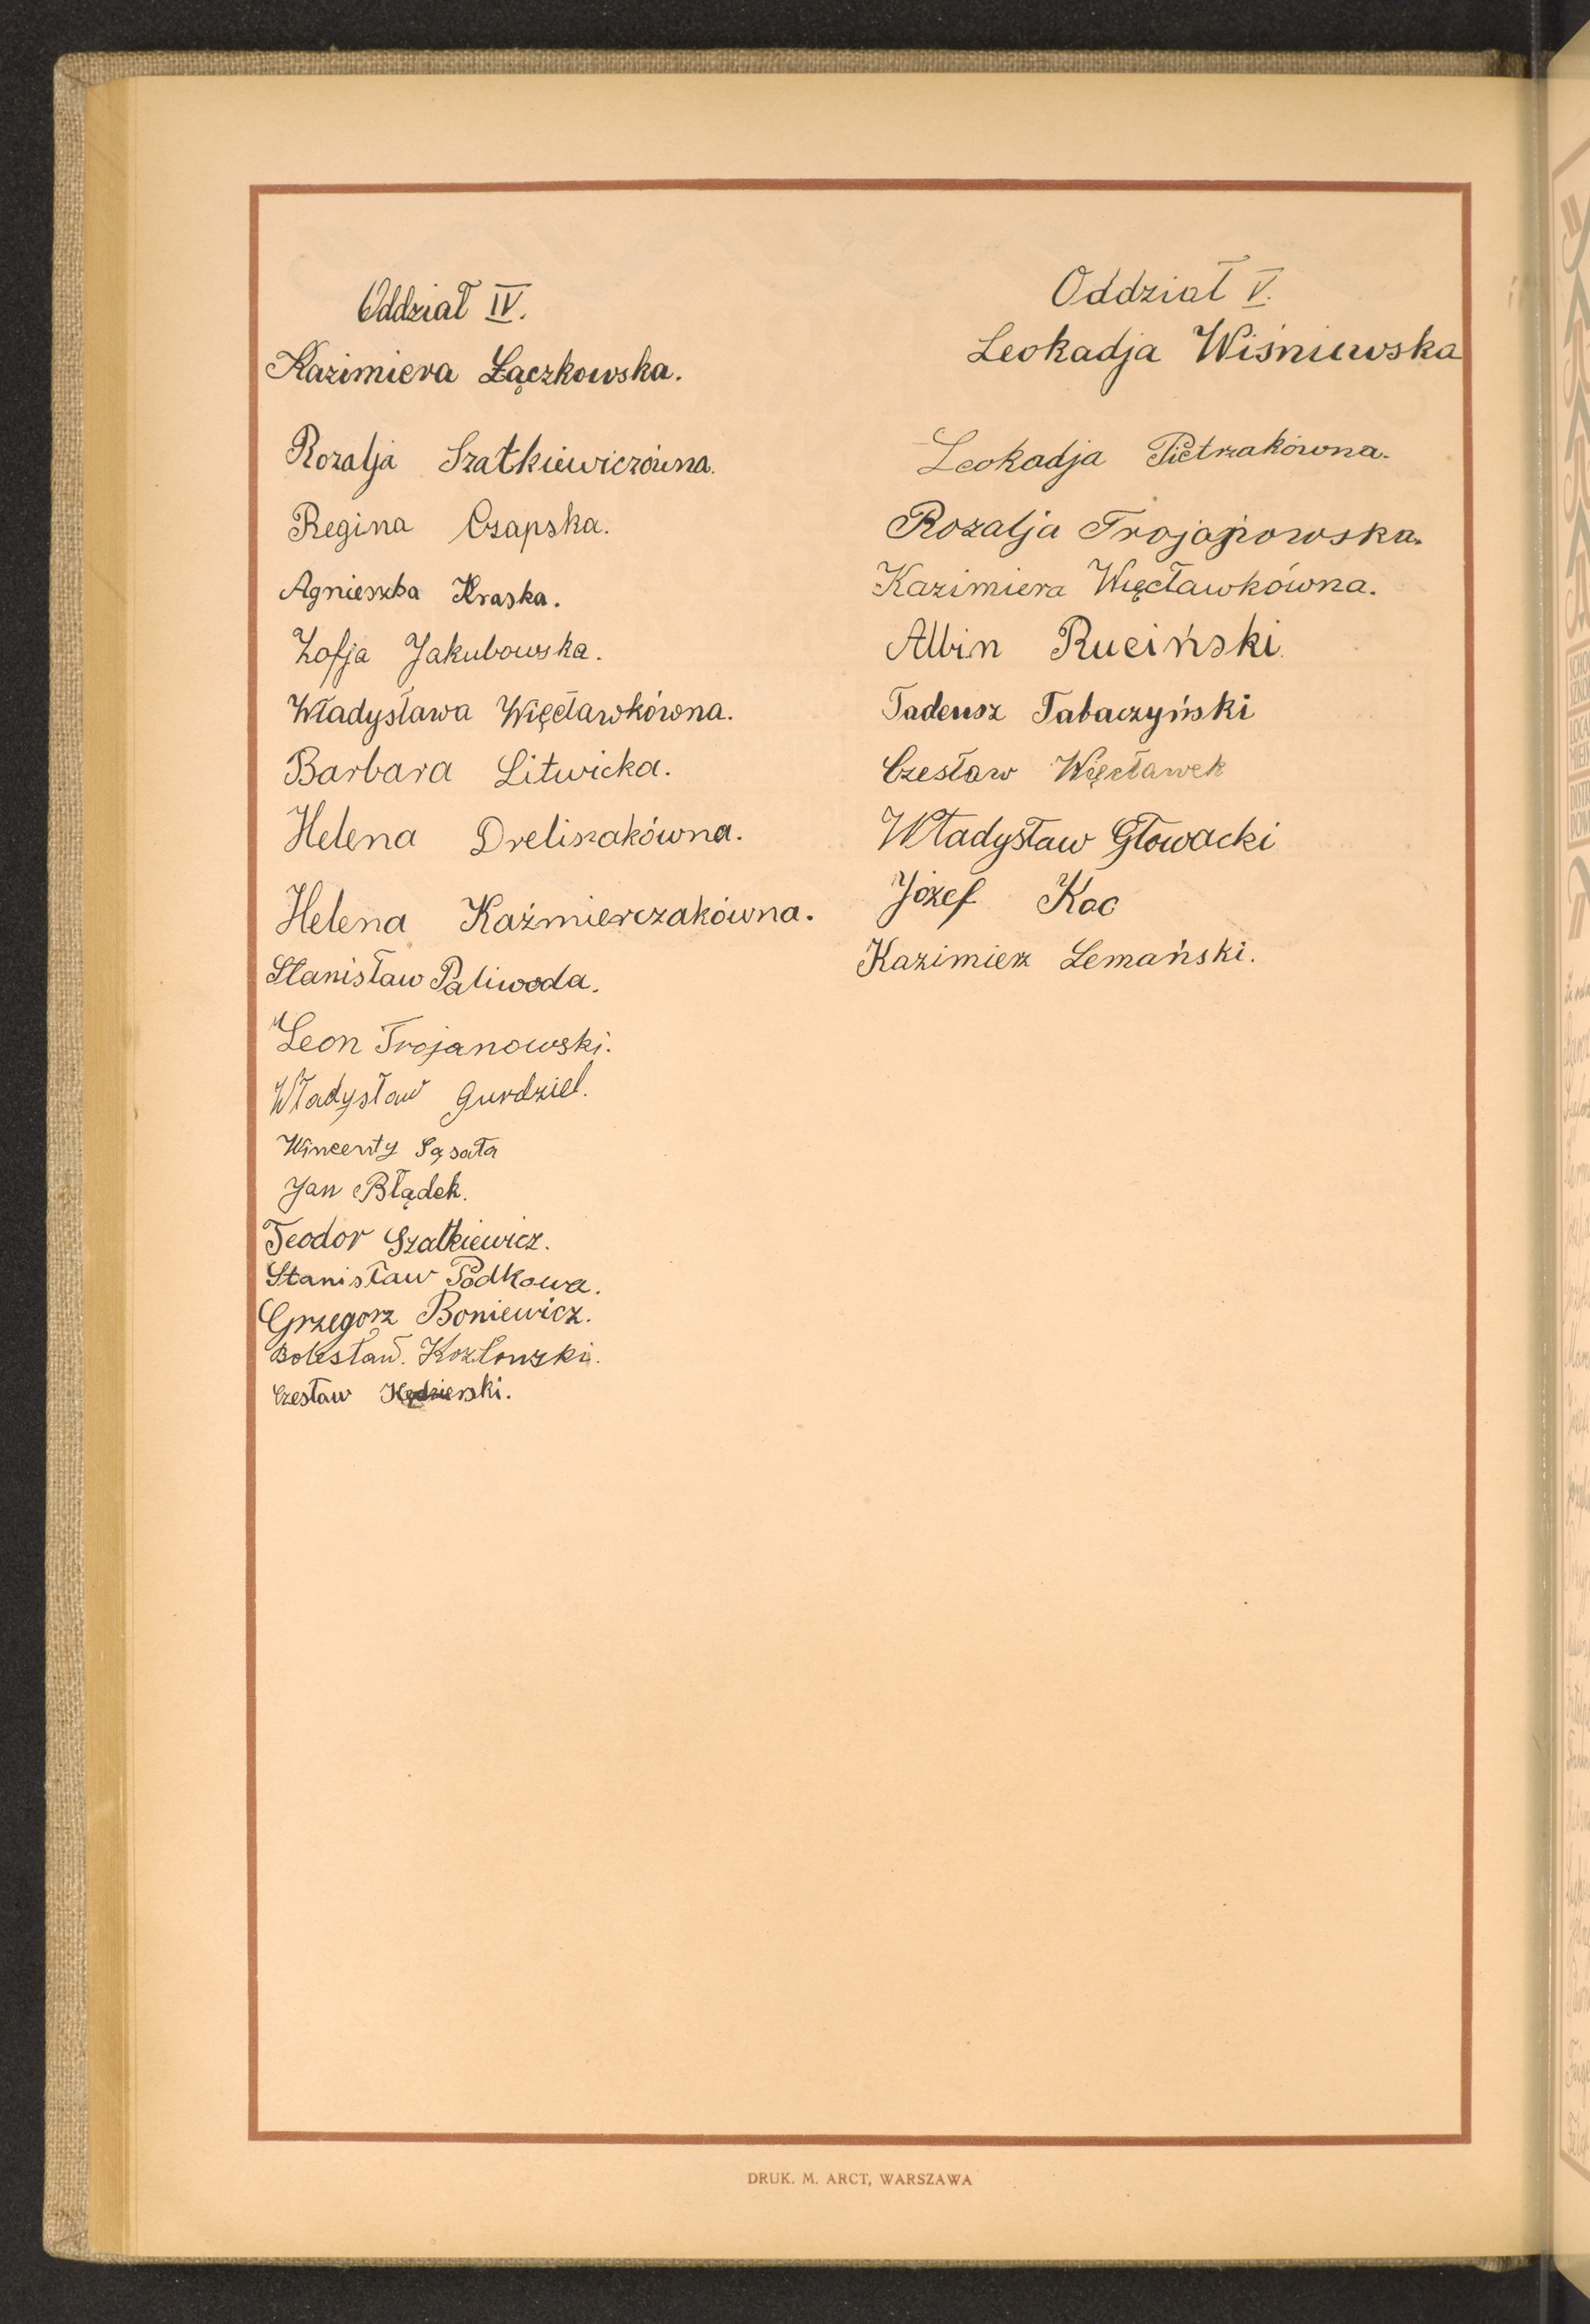 Oddział IV.
Kazimiera Łączkowska.
Rozalja Szatkiewiczówna.
Regina Czapska.
Agnieszka Kraska.
Zofja Jakubowska.
Władysława Więcławkówna.
Barbara Litwicka.
Helena Dreliszakówna.
Helena Kaźmierczakówna.
Stanisław Paliwoda.
Leon Trojanowski.
Władysław Gurdziel.
Wincenty Sąsała
Jan Błądek.
Teodor Szatkiewicz.
Stanisław Podkowa.
Grzegorz Boniewicz.
Bolesław. Kozłowski.
Czesław Kędzierski.
Oddział V.
Leokadja Wiśniewska
Leokadja Pietrzakówna.
Rozalja Trojanowska.
Kazimiera Więcławkówna.
Albin Ruciński.
Tadeusz Tabaczyński
Czesław Więcławek
Władysław Głowacki
Józef Koc
Kazimierz Lemański.
DRUK. M. ARCT, WARSZAWA